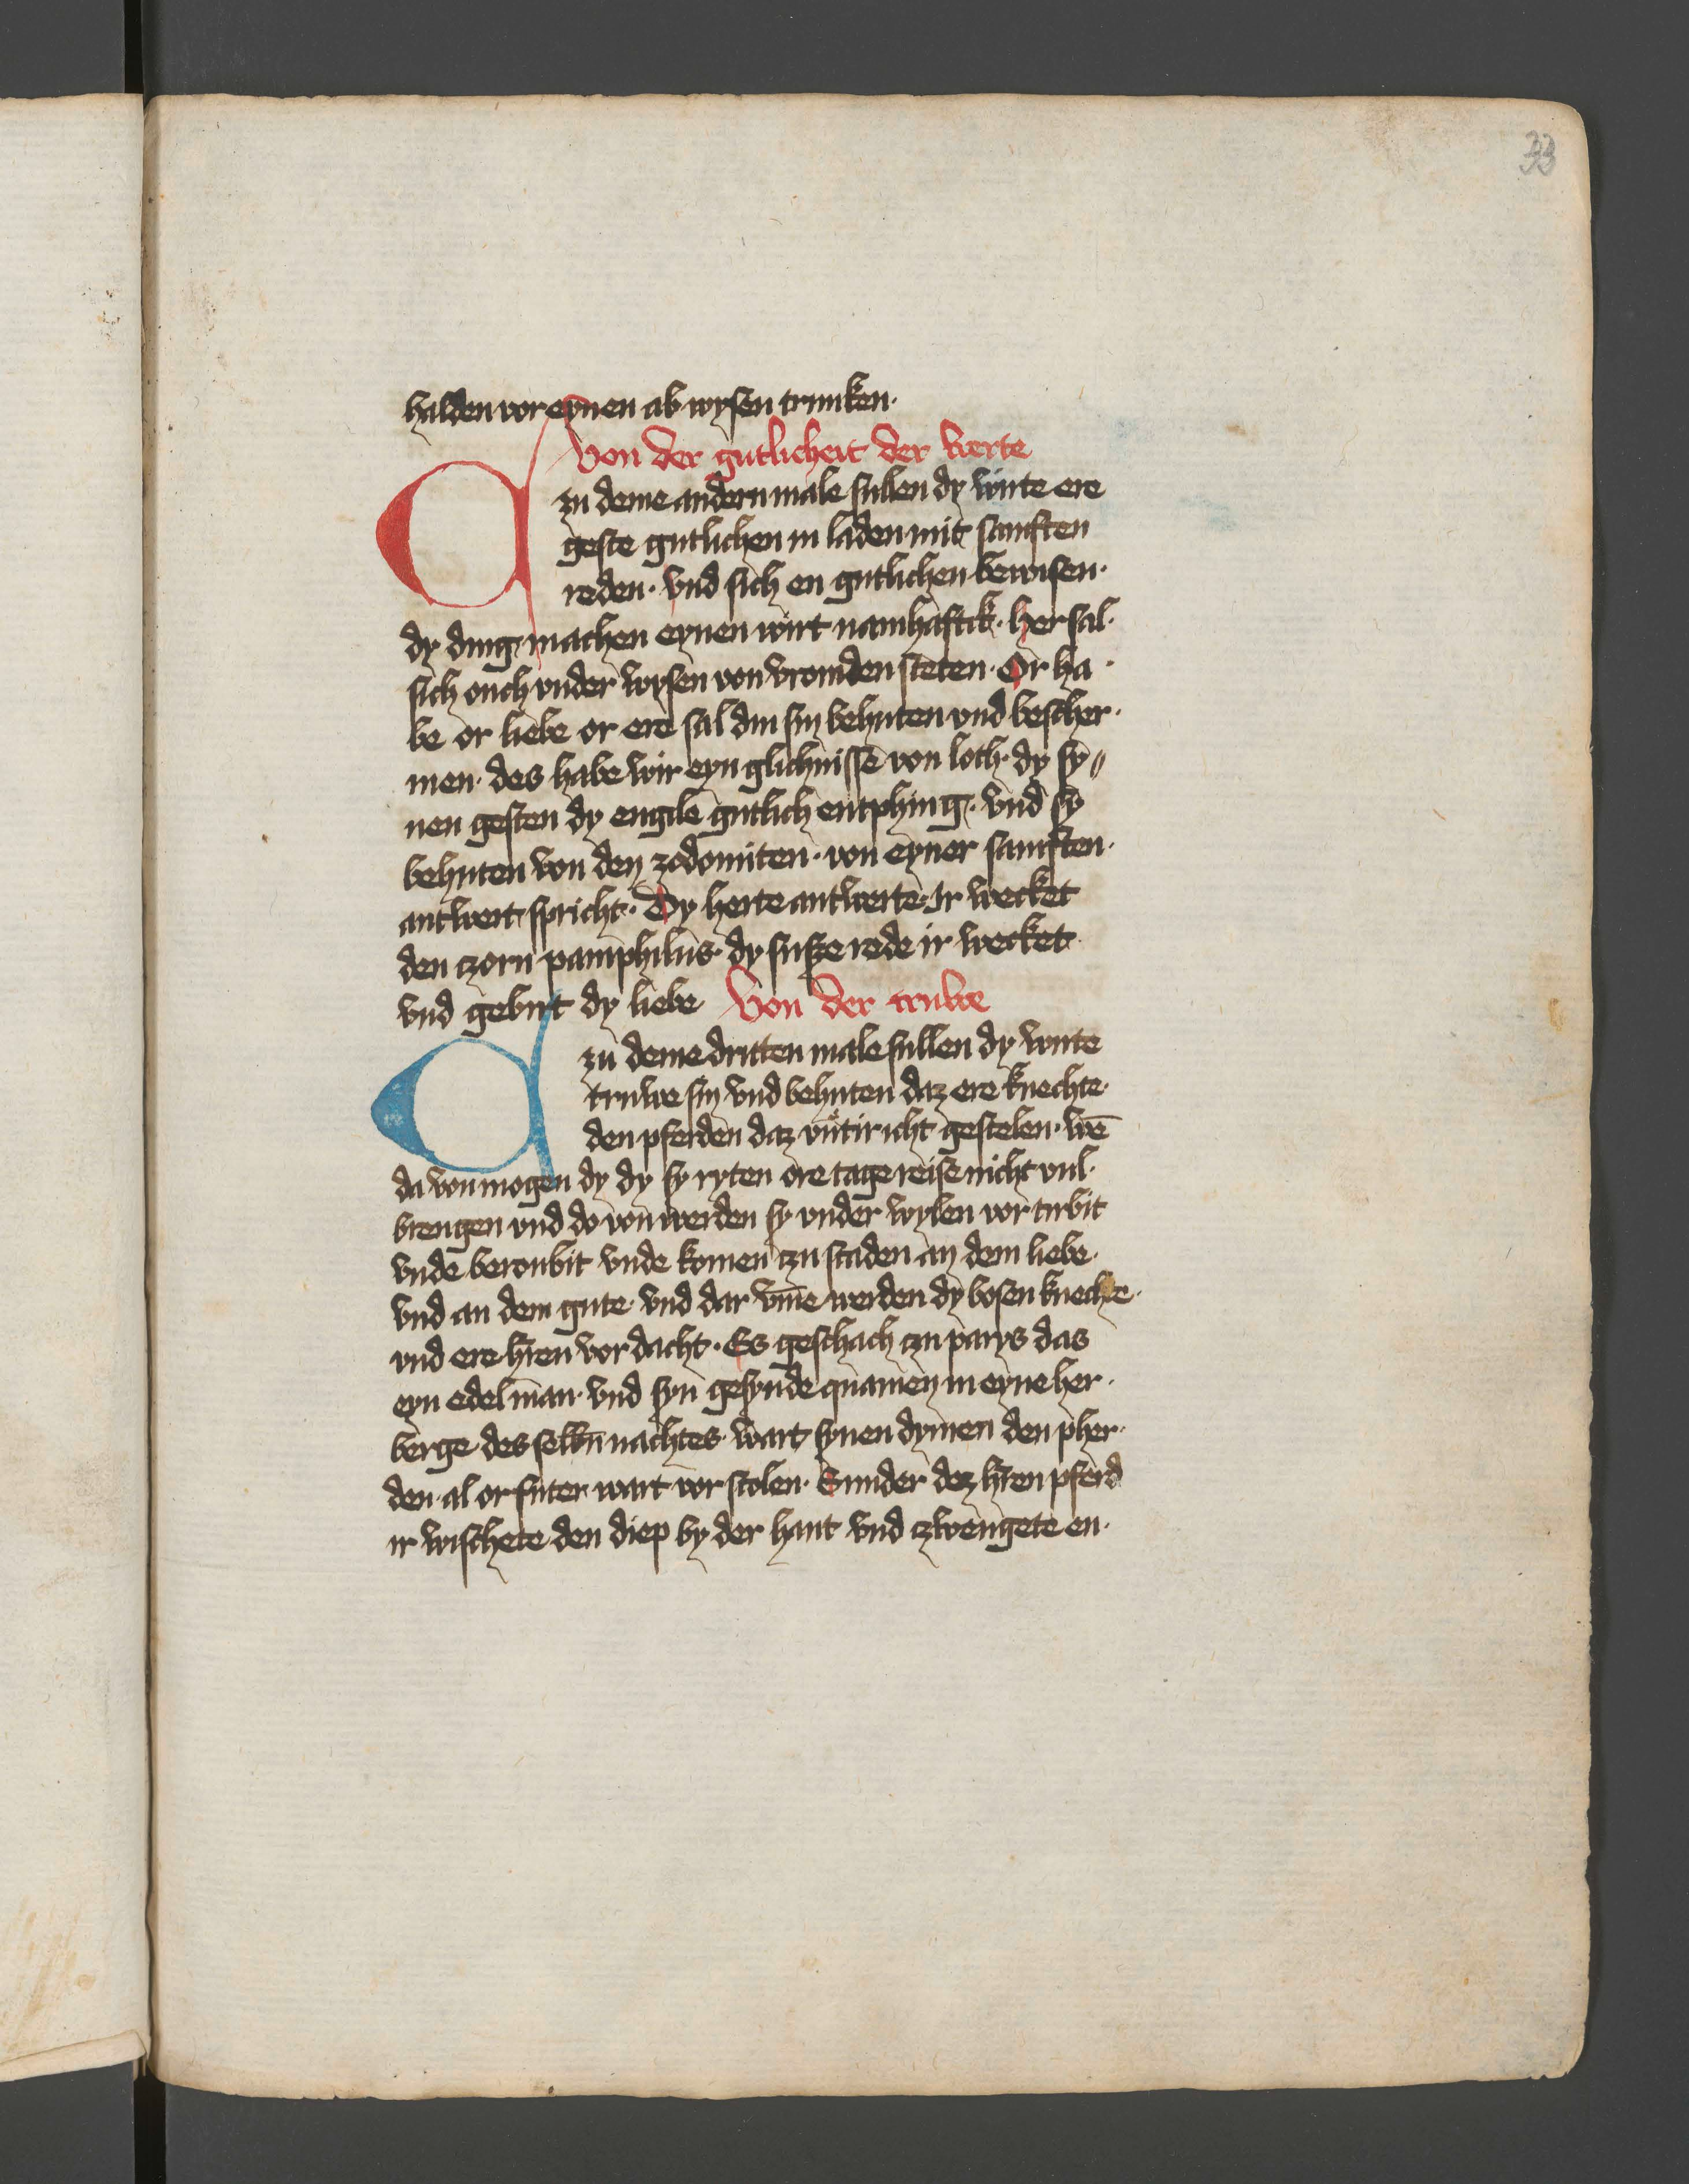 33
halden vor eynen ab wysen trunken·
Von der gutlicheit der werte
Czu deme andern male sullen dy wirte ere
geste gutlichen in laden mit sanften
reden· vnd sich en gutlichen bewisen·
dy ding machen eynen wirt namhaftik· her sal·
sich ouch vnder wysen von vromden steten· Or ha·
be or liebe or ere sal din sin behuten vnd bescher·
men· des habe wir eyn glichnisse von loth· dy sy〃
nen gesten dy engile gutlich entphing· vnd sy
behuten von den zodomiten· von eyner sanften·
antwert spricht· Dy herte antwerte· Ir wecket
den czorn pamphilus· dy susze rede ir wecket
vnd gebirt dy liebe Von der truwe
Czu deme dritten male sullen dy wirte
truwe sin vnd behuten daz ere knechte·
den pferden daz vutir icht gestelen· wē
da von mogen dy dy sy ryten ore tage reise nicht vul·
brengen vnd do von werden sy vnder wylen vor turbit
vnde beroubit vnde komen czu staden an dem liebe·
vnd an dem gute· vnd dar vm̄e werden dy bosen knechte·
vnd ere h̄ren vor dacht· Es geschach czu parys das
eyn edel man· vnd syn gesynde quamen in eyne her·
berge des selbn̄ nachtes· wart synen dynen den pher·
den· al or futer wart vor stolen· Sunder dez h̄ren pferd
ir wischete den diep by der hant vnd czwengete en·